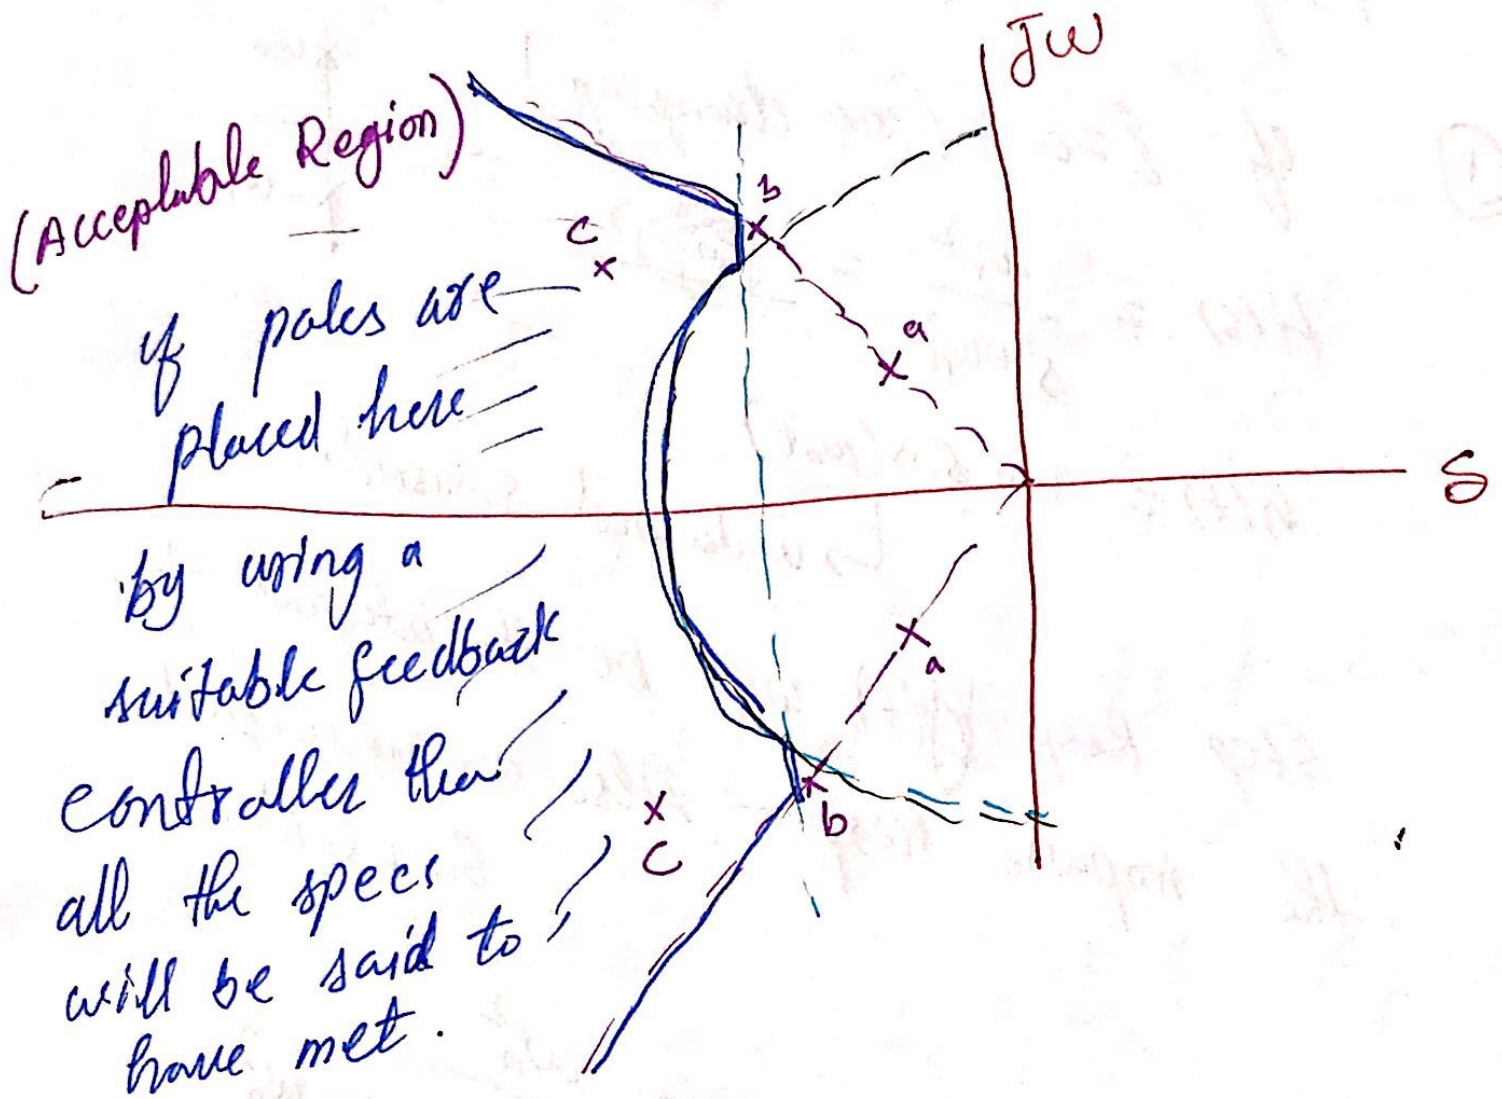 Jω
(Acceptable Region)
b
c
a
if poles are
placed here
σ
by using a
suitable feedback
a
controller then
b
c
all the specs
will be said to
have met.